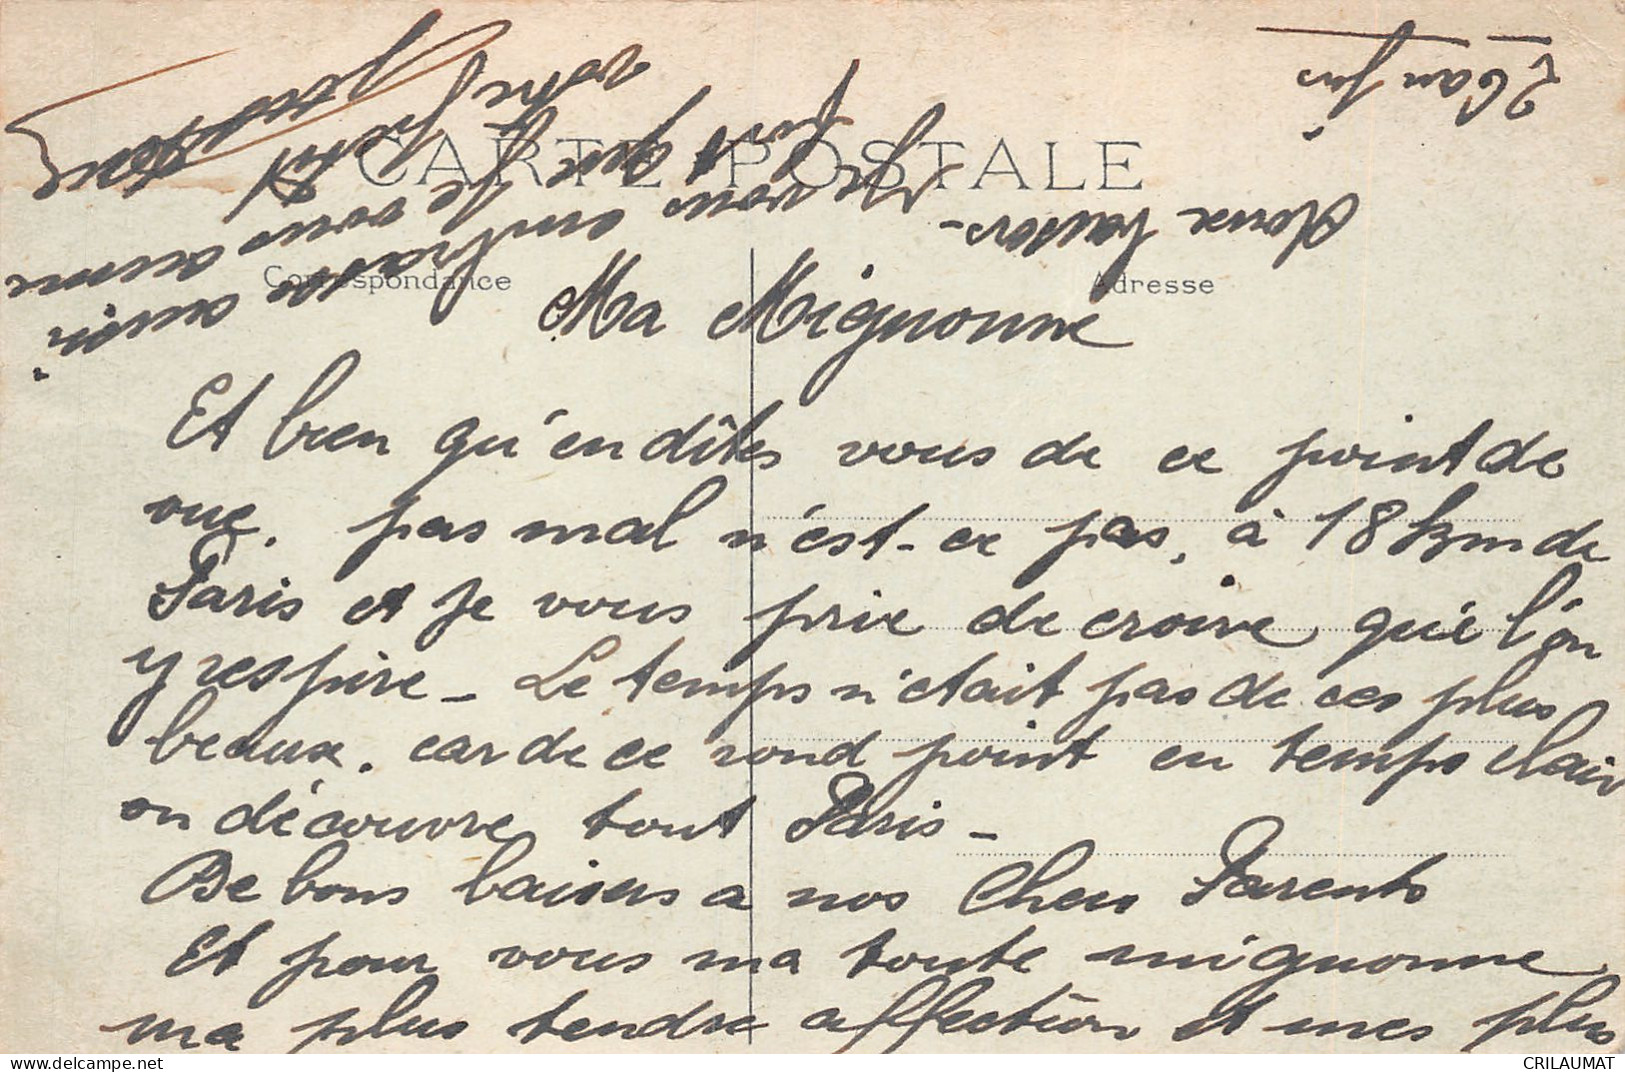 CARTE POSTALE
Correspondance
Adresse
Ma Mignonne
Et bien qu'en dîtes vous de ce point de
vue. pas mal n'est-ce pas, à 18 km de
Paris et je vous prie de croire que l'on
y respire - Le temps n'était pas de ces plus
beaux. car de ce rond point en temps clair
on découvre tout Paris -
De bons baisers a nos Chers Parents
Et pour vous ma toute mignonne
ma plus tendre affection et mes plus
doux baisers -
Je vous aime
votre petit
CRILAUMAT